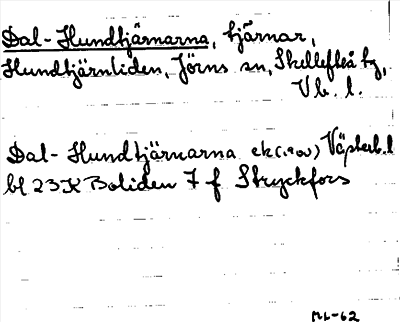 Dal-Hundtjärnarna, tjärnar,
Hundtjärnliden, Jörns sn, Skellefteå tg,
Vb. l.
Dal-Hundtjärnarna ek Västerb. l
bl 23K Boliden 7 f Stryckfors